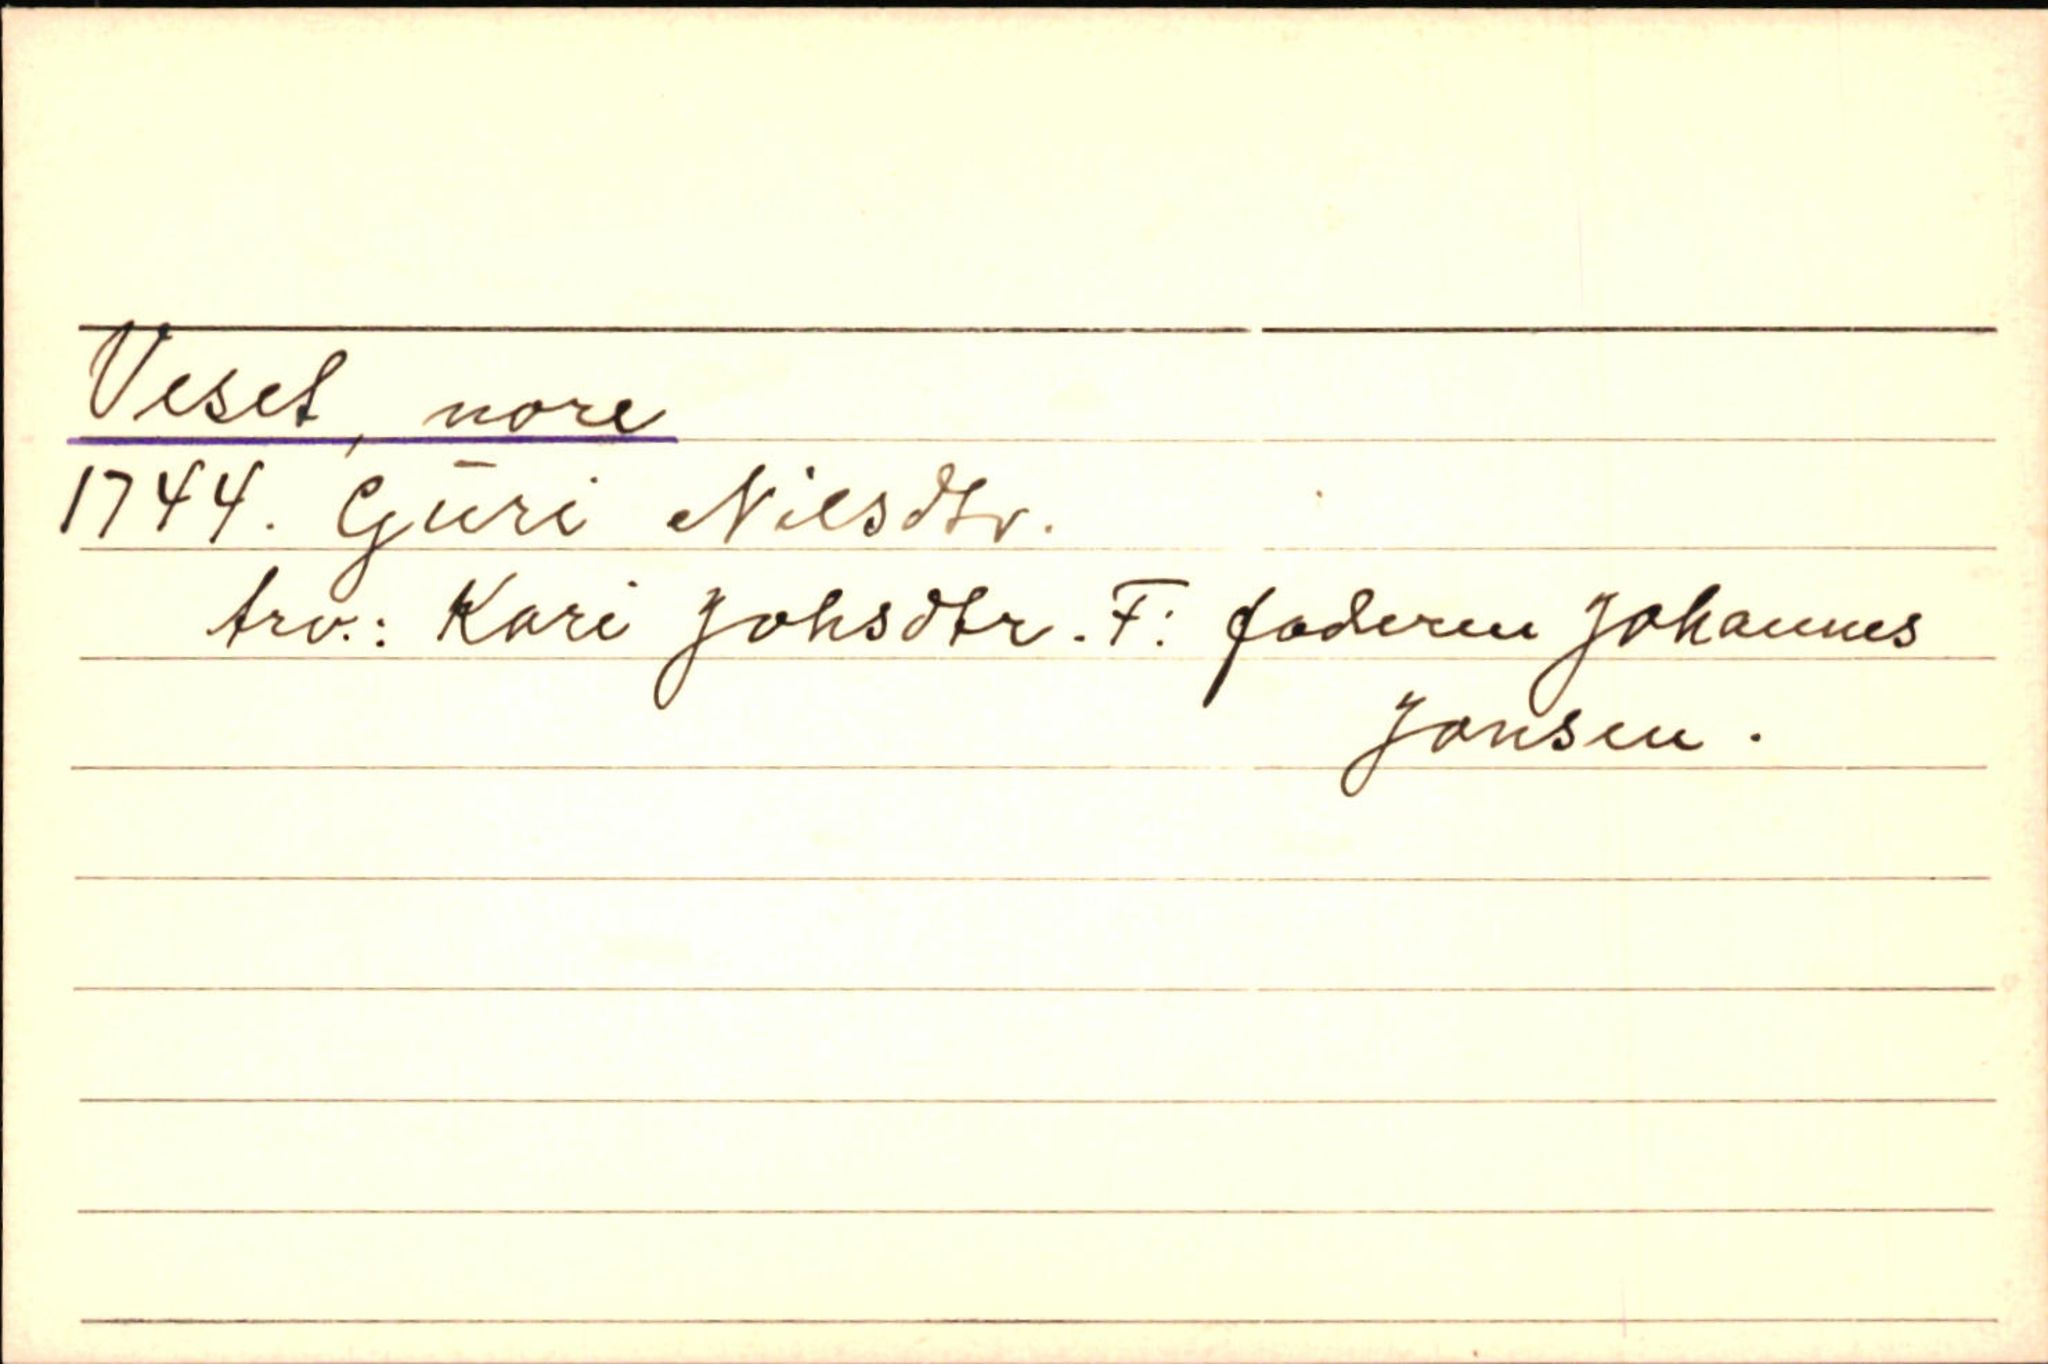 Veset, nore
1744. Guri Nilsdtr.
Arv.: Kari Johsdtr. F: faderen Johannes
Jonsen.